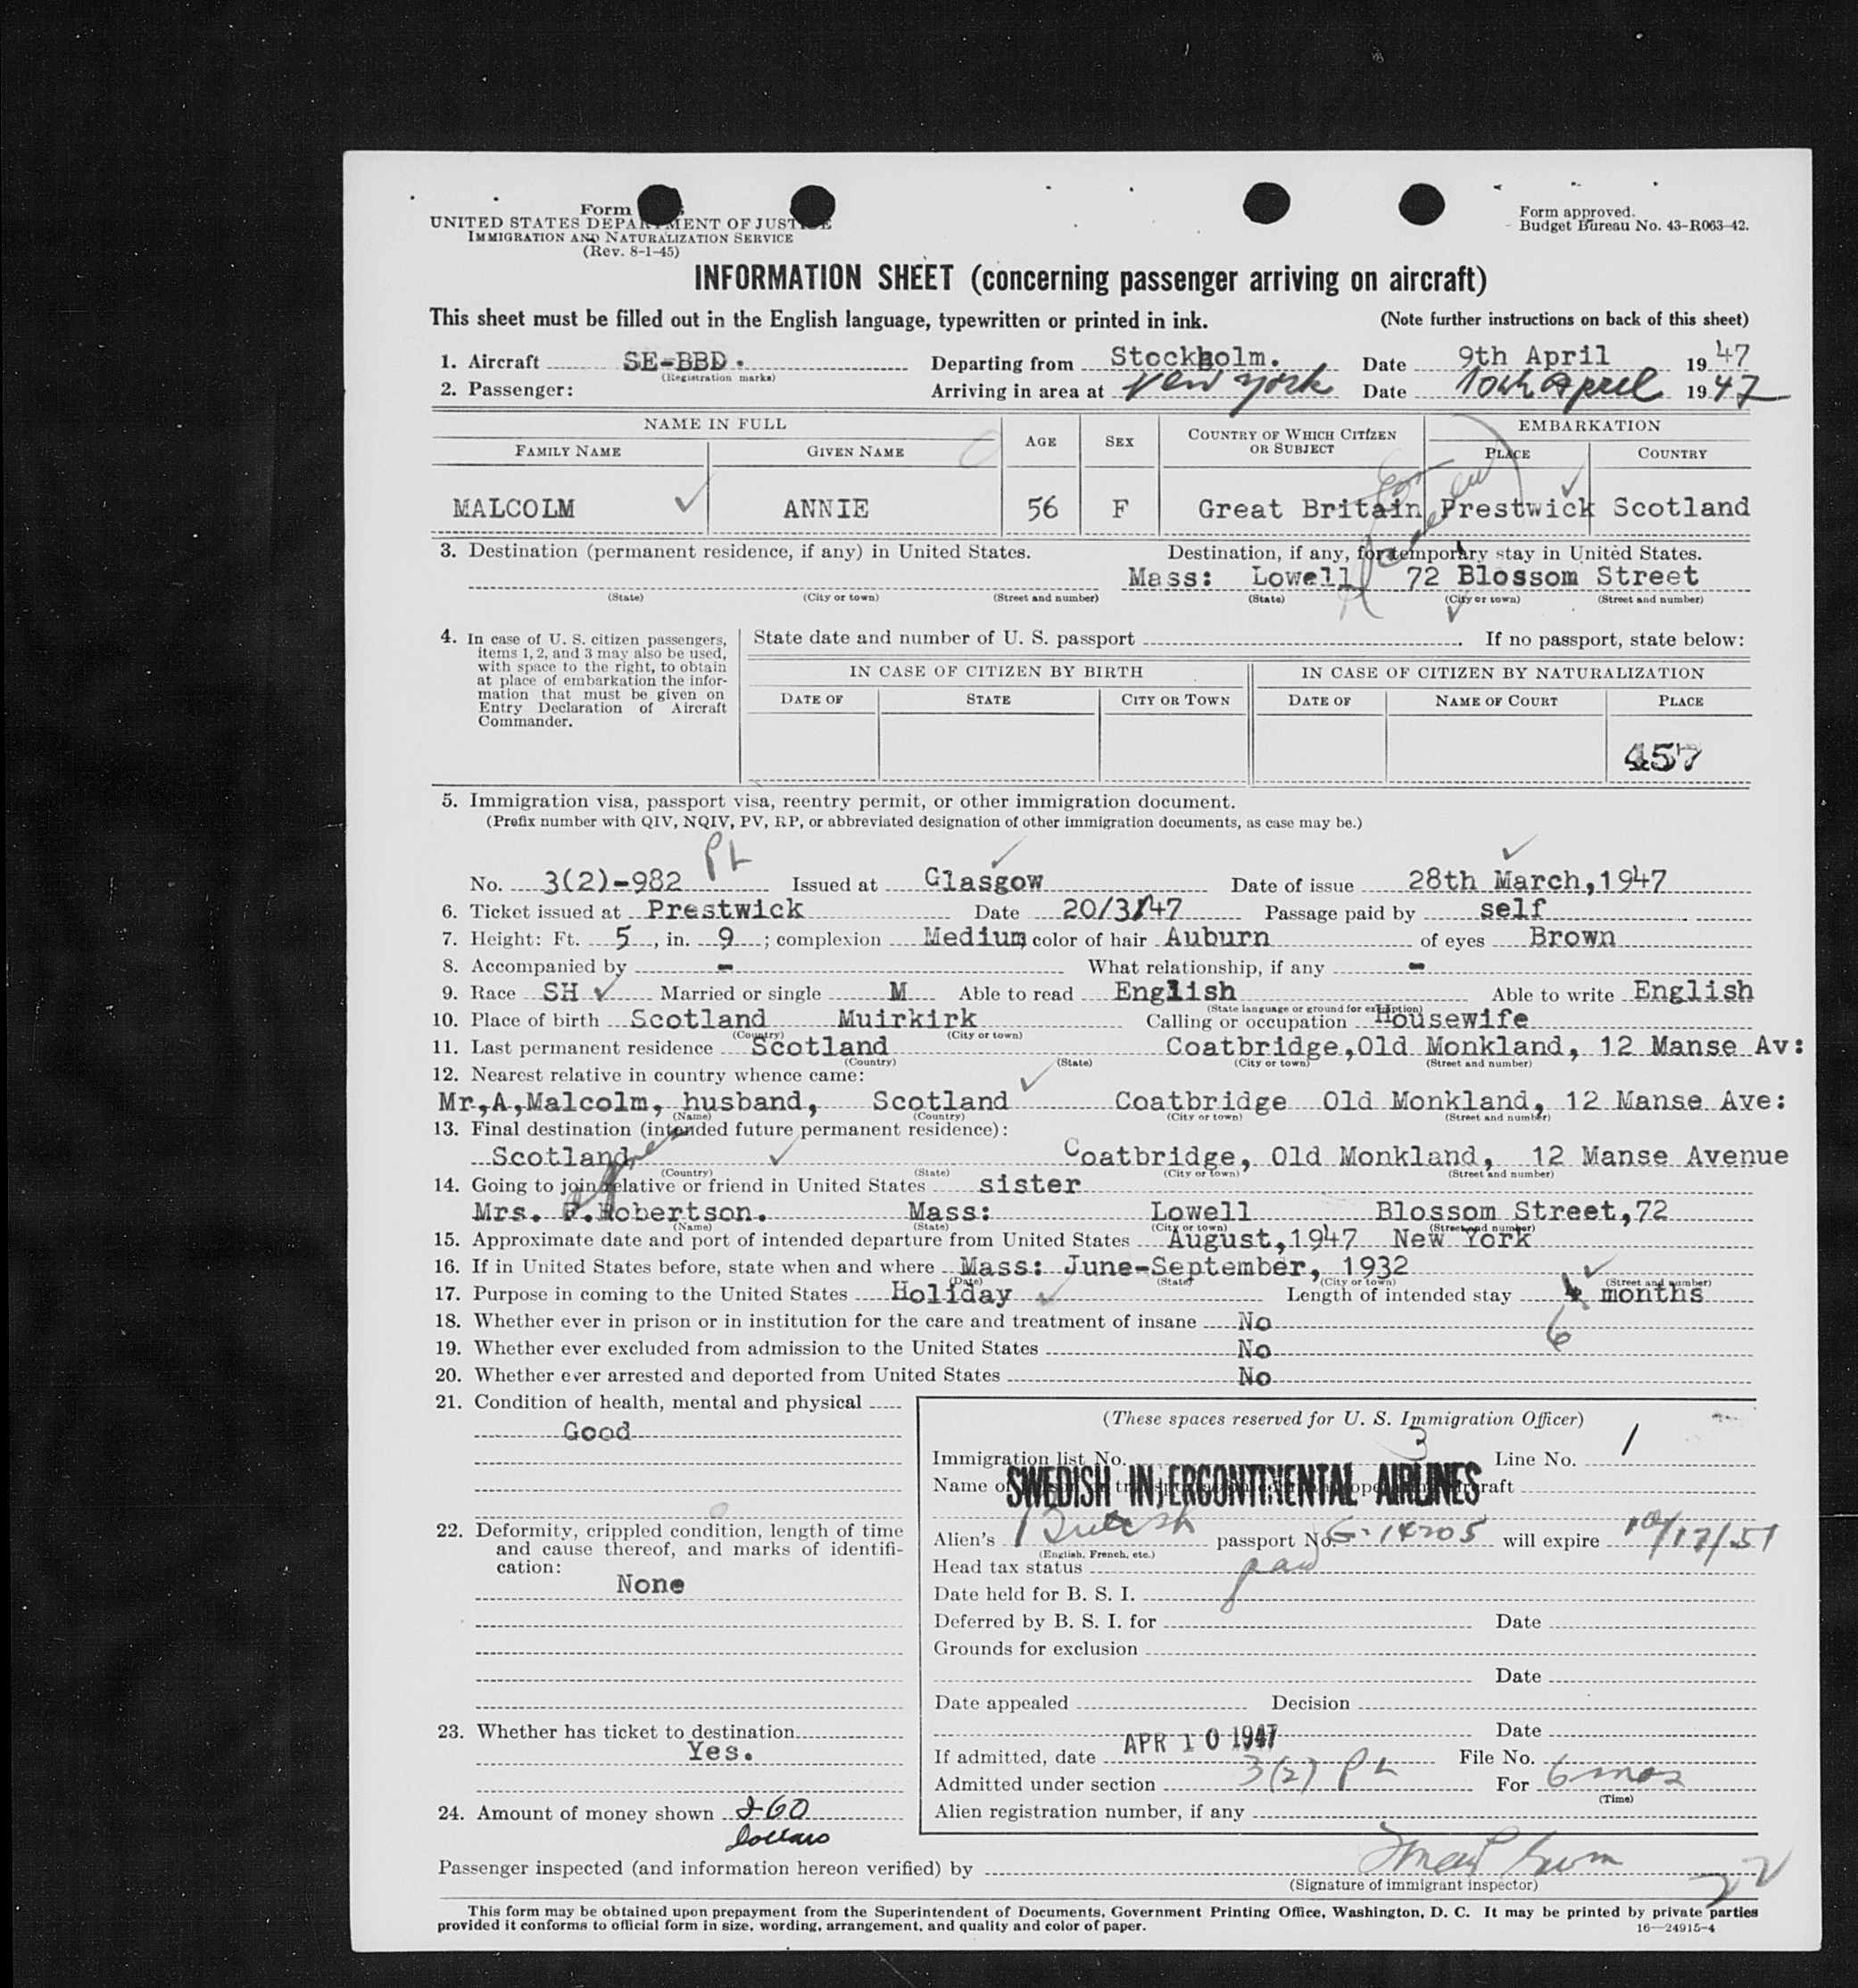 Form
UNITED STATES DEPARTMENT OF JUSTICE
IMMIGRATION AND NATURALIZATION SERVICE
(Rev. 8-1-45)
Form approved.
Budget Bureau No. 43-R063-42.
INFORMATION SHEET (concerning passenger arriving on aircraft)
This sheet must be filled out in the English language, typewritten or printed in ink. (Note further instructions on back of this sheet)
1. Aircraft SE-BBD. Departing from Stockholm. Date 9th April 1947
(Registration marks)
2. Passenger: Arriving in area at New York Date 10th April 1947
NAME IN FULL AGE SEX COUNTRY OF WHICH CITIZEN OR SUBJECT EMBARKATION
FAMILY NAME GIVEN NAME PLACE COUNTRY
MALCOLM ANNIE 56 F Great Britain Prestwick Scotland
3. Destination (permanent residence, if any) in United States. Destination, if any, for temporary stay in United States.
Mass: Lowell 72 Blossom Street
(State) (City or town) (Street and number) (State) (City or town) (Street and number)
4. In case of U. S. citizen passengers, items 1, 2, and 3 may also be used, with space to the right, to obtain at place of embarkation the information that must be given on Entry Declaration of Aircraft Commander.
State date and number of U. S. passport If no passport, state below:
IN CASE OF CITIZEN BY BIRTH IN CASE OF CITIZEN BY NATURALIZATION
DATE OF STATE CITY OR TOWN DATE OF NAME OF COURT PLACE
457
5. Immigration visa, passport visa, reentry permit, or other immigration document.
(Prefix number with QIV, NQIV, PV, RP, or abbreviated designation of other immigration documents, as case may be.)
PL
No. 3(2)-982 Issued at Glasgow Date of issue 28th March,1947
6. Ticket issued at Prestwick Date 20/3/47 Passage paid by self
7. Height: Ft. 5, in. 9; complexion Medium color of hair Auburn of eyes Brown
8. Accompanied by - What relationship, if any -
9. Race SH Married or single M Able to read English Able to write English
(State language or ground for exemption)
10. Place of birth Scotland Muirkirk Calling or occupation Housewife
(Country) (City or town)
11. Last permanent residence Scotland Coatbridge,Old Monkland, 12 Manse Av:
(Country) (State) (City or town) (Street and number)
12. Nearest relative in country whence came:
Mr,A,Malcolm, husband, Scotland Coatbridge Old Monkland, 12 Manse Ave:
(Name) (Country) (City or town) (Street and number)
13. Final destination (intended future permanent residence):
Scotland Coatbridge, Old Monkland, 12 Manse Avenue
(Country) (State) (City or town) (Street and number)
14. Going to join relative or friend in United States sister
Mrs. Robertson. Mass: Lowell Blossom Street,72
(Name) (State) (City or town) (Street and number)
15. Approximate date and port of intended departure from United States August,1947 New York
16. If in United States before, state when and where Mass: June-September, 1932
(Date) (State) (City or town) (Street and number)
17. Purpose in coming to the United States Holiday Length of intended stay 4 months
6
18. Whether ever in prison or in institution for the care and treatment of insane No
19. Whether ever excluded from admission to the United States No
20. Whether ever arrested and deported from United States No
21. Condition of health, mental and physical
Good
22. Deformity, crippled condition, length of time and cause thereof, and marks of identification:
None
23. Whether has ticket to destination
Yes.
24. Amount of money shown 260
Dollars
(These spaces reserved for U. S. Immigration Officer)
Immigration list No. 3 Line No. 1
SWEDISH INTERCONTINENTAL AIRLINES
Alien's British passport No. G-14205 will expire 10/17/51
(English, French, etc.)
Head tax status paid
Date held for B. S. I.
Deferred by B. S. I. for Date
Grounds for exclusion
Date
Date appealed Decision
Date
If admitted, date APR 10 1947 File No.
Admitted under section 3(2) PL For 6 mos
(Time)
Alien registration number, if any
Passenger inspected (and information hereon verified) by
(Signature of immigrant inspector)
22
This form may be obtained upon prepayment from the Superintendent of Documents, Government Printing Office, Washington, D. C. It may be printed by private parties
provided it conforms to official form in size, wording, arrangement, and quality and color of paper.
16—24915-4